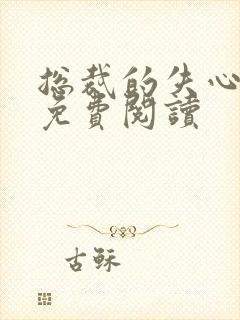 总裁的失心
免費閱讀
古稣